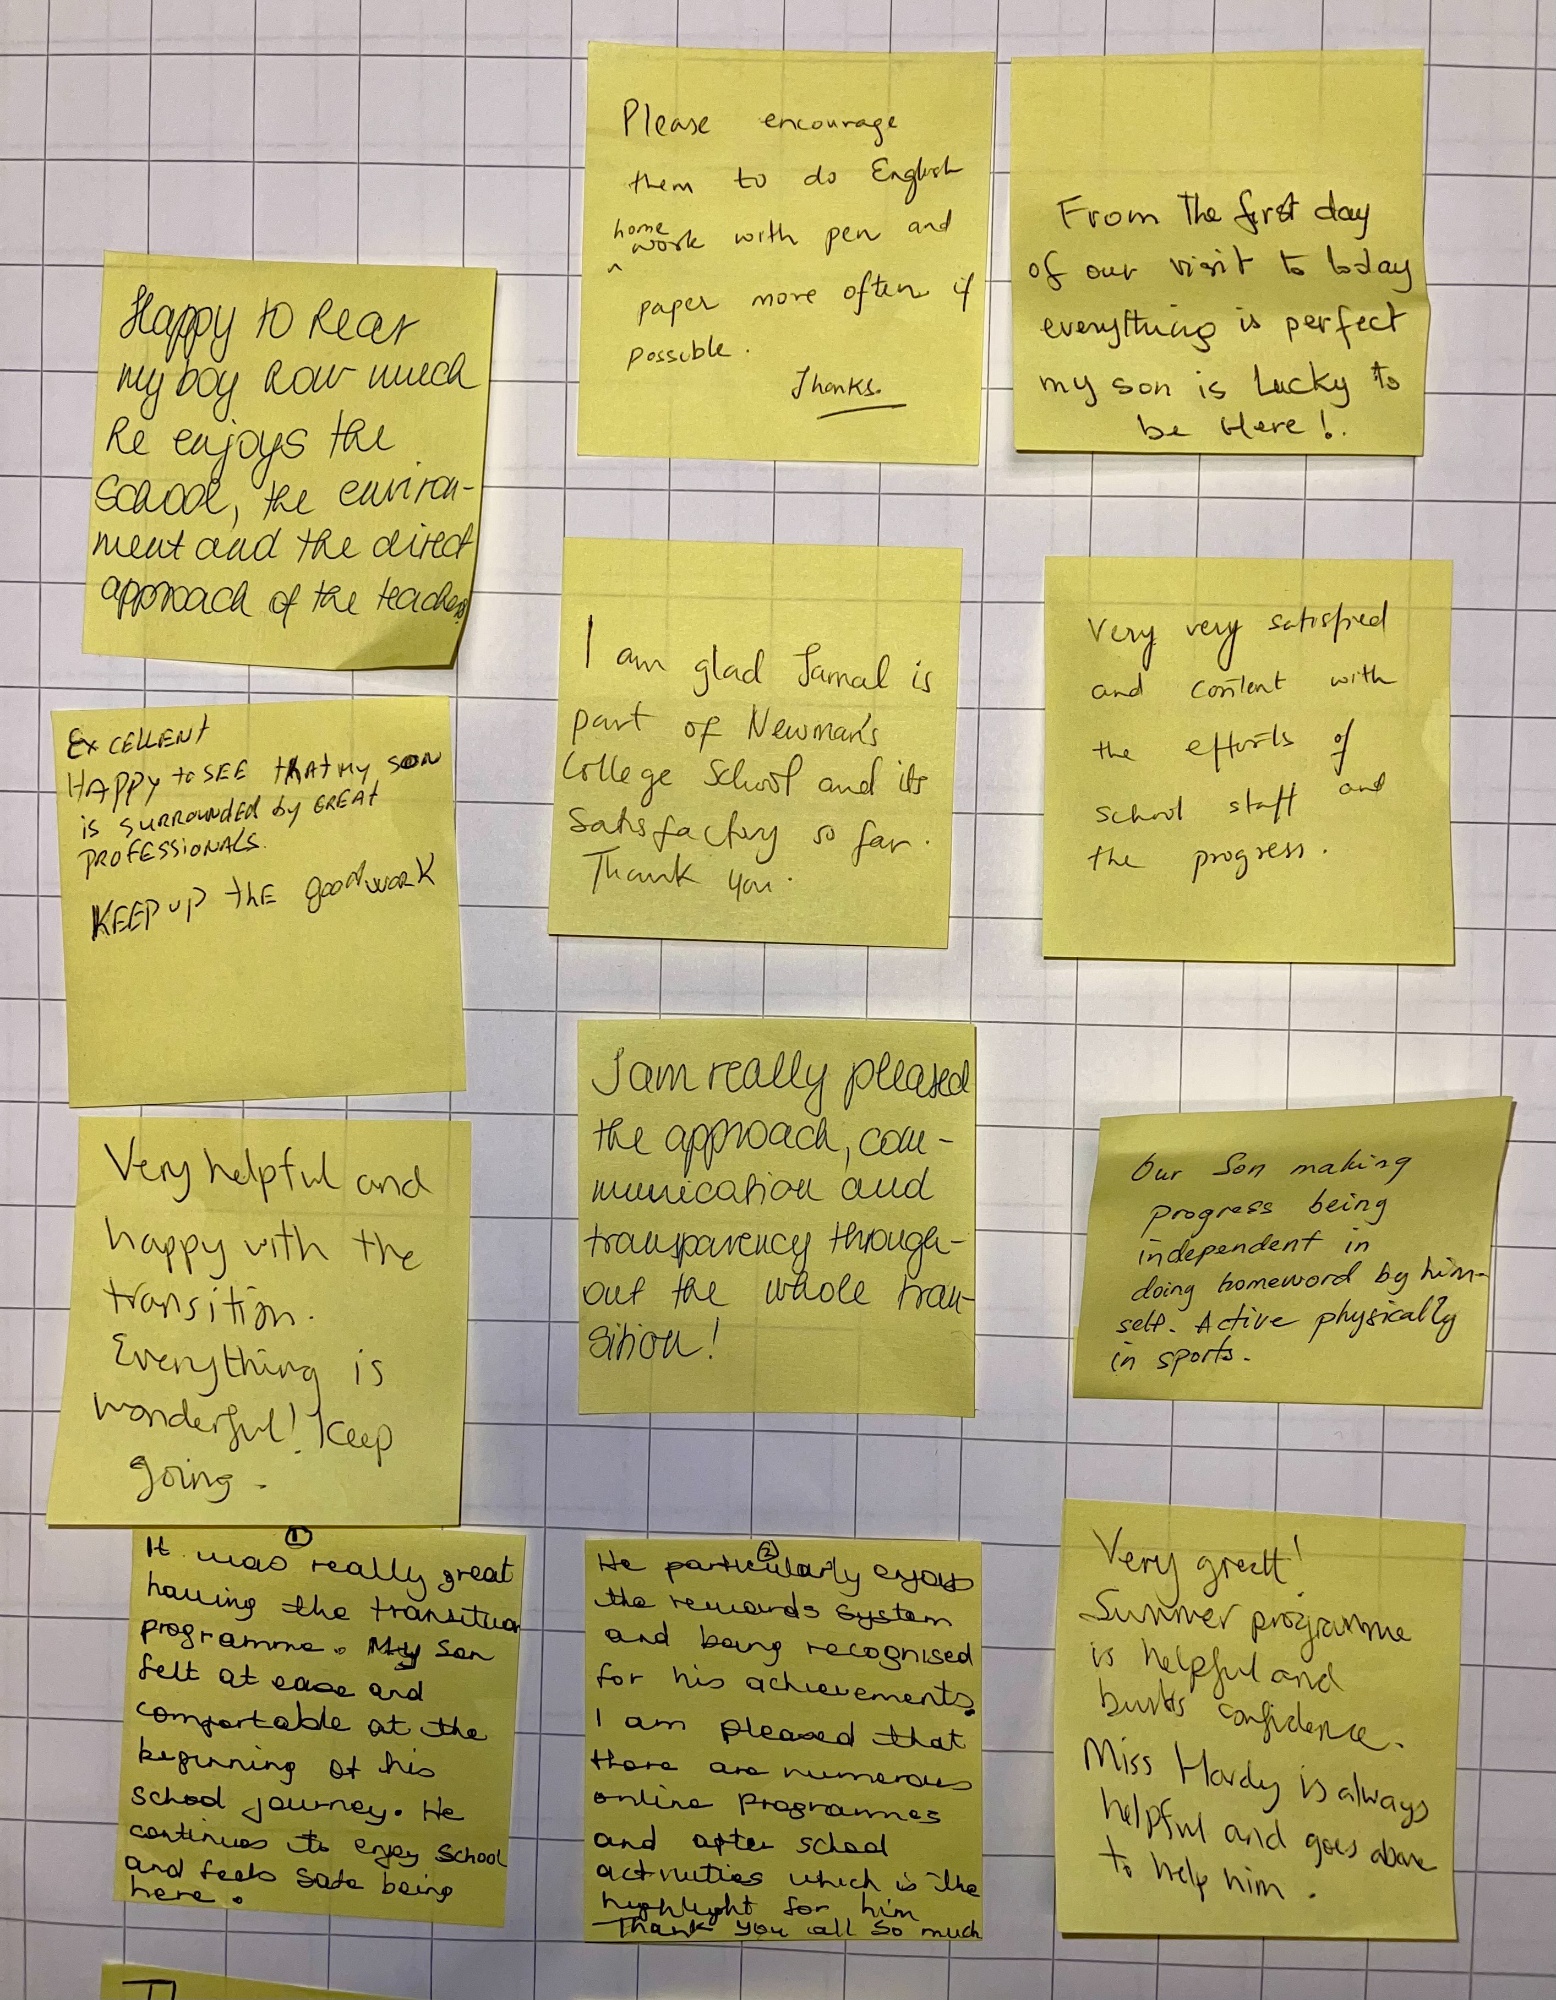 Please encourage
them to do English
home
work with pen and
paper more often if
possible.
Thanks.
From the first day
of our visit to today
everything is perfect
my son is Lucky to
be Here!.
Happy to hear
my boy how much
he enjoys the
school, the environ-
ment and the direct
approach of the teachers
I am glad Jamal is
part of Newman's
College School and its
Satisfactory so far.
Thank you.
Very very satisfied
and content with
the efforts of
school staff and
the progress.
EXCELLENT
HAPPY to SEE tHAT MY SON
is SURROUNDED by GREAt
PROFESSIONALS.
KEEP UP tHE good WORK
I am really pleased
the approach, com-
munication and
transparency through-
out the whole tran-
sition!
Our Son making
progress being
independent in
doing homeword by him-
self. Active physically
in sports.
Very helpful and
happy with the
transition.
Everything is
wonderful! Keep
going.
1
It was really great
having the transition
programme. My Son
felt at ease and
comfortable at the
beginning of his
school journey. He
continues to enjoy school
and feels safe being
here.
2
He particularly enjoys
the rewards system
and being recognised
for his achievements.
I am pleased that
there are numerous
online programmes
and after school
activities which is the
highlight for him
Thank you all so much
Very great!
Summer programme
is helpful and
builds confidence.
Miss Hardy is always
helpful and goes above
to help him.